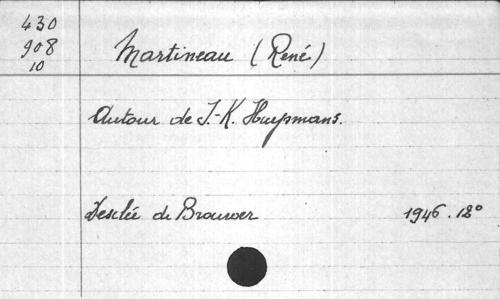 430
908
10
Martineau (René)
Autour de J.-K. Huysmans.
Desclée de Brouwer
1946. 12°